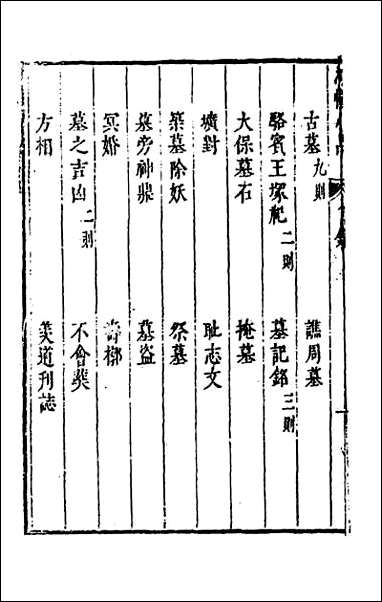 古墓九則 譙周墓
駱賓王塚祀二則 墓記銘三則
大保墓石 掩墓
壙對 耻志文
築墓除妖 祭墓
墓旁神鼎 墓盜
冥婚 壽槨
墓之吉凶二則 不會葬
方相 羨道刊誌